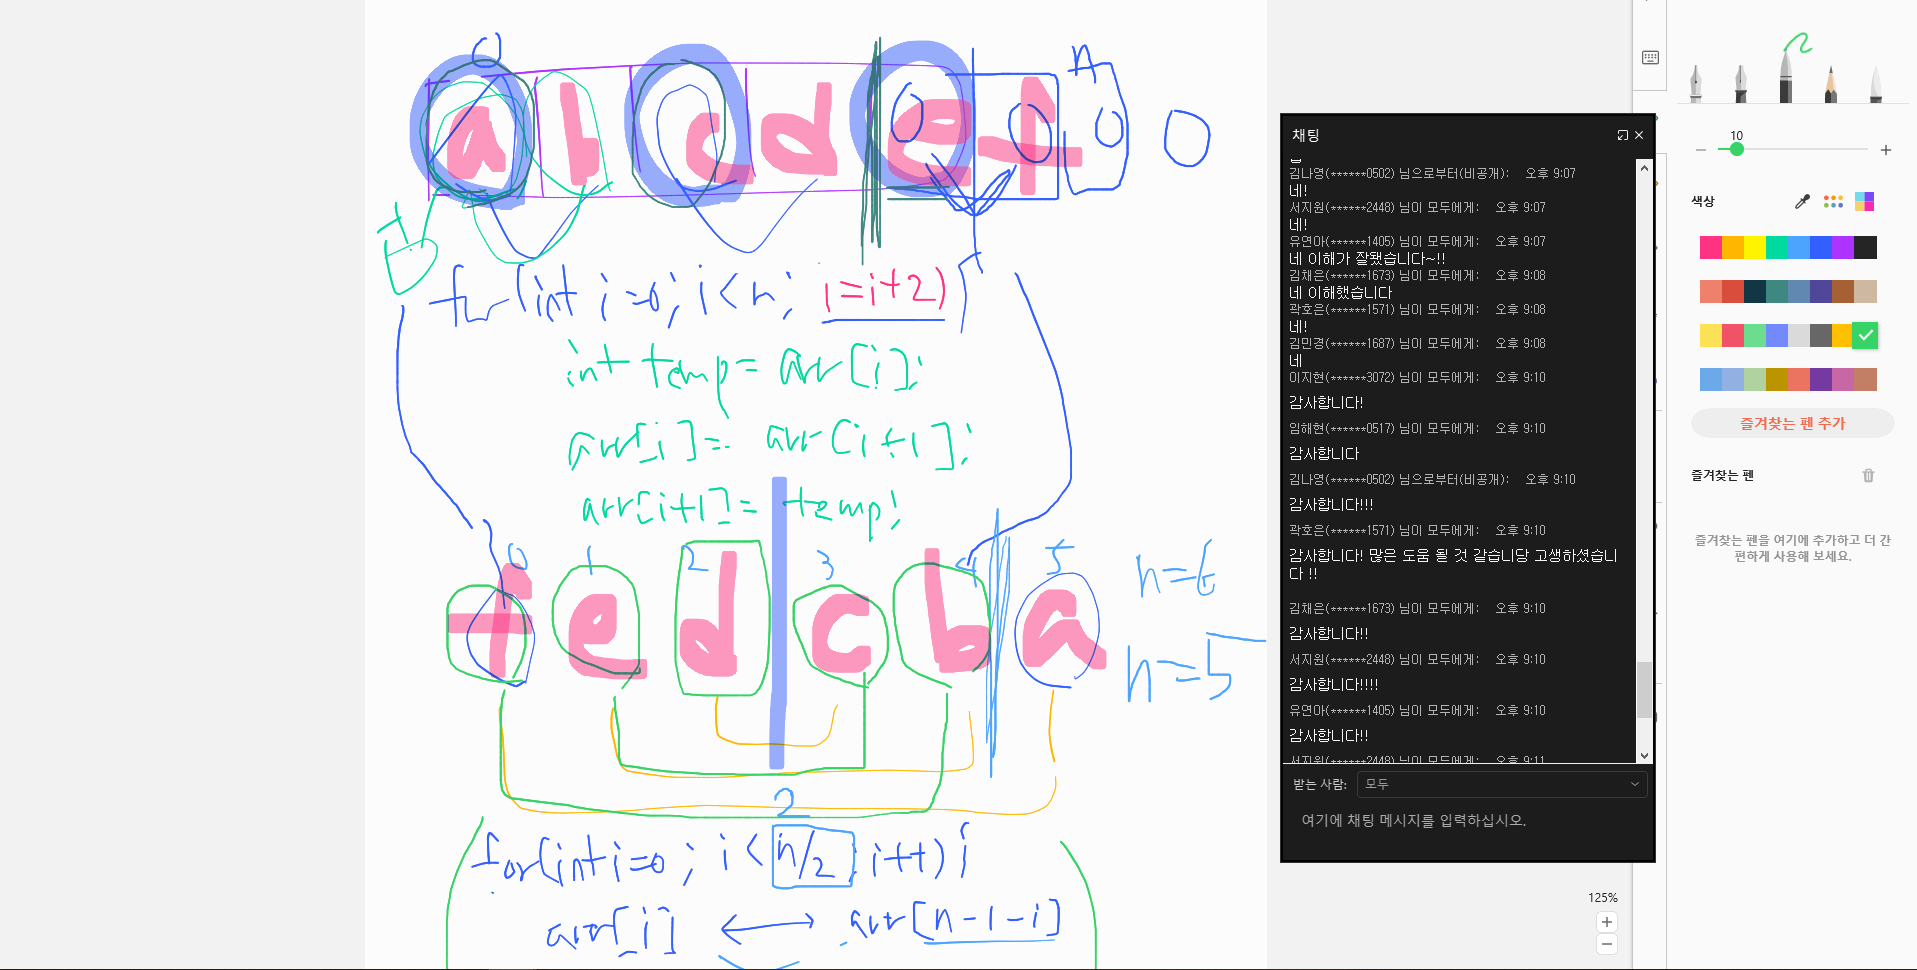 0
n
a b c d e f
0 0 0 0
for(int i=0; i<n; i=i+2){
int temp = arr[i];
arr[i] = arr[i+1];
arr[i+1] = temp;
0 1 2 3 4 5
f e d c b a
n=6
n=5
2
for(int i=0; i<n/2; i++){
arr[i] ↔ arr[n-1-i]
채팅
김나영(******0502) 님으로부터(비공개): 오후 9:07
네!
서지원(******2448) 님이 모두에게: 오후 9:07
네!
유연아(******1405) 님이 모두에게: 오후 9:07
네 이해가 잘됐습니다~!!
김채은(******1673) 님이 모두에게: 오후 9:08
네 이해했습니다
곽호은(******1571) 님이 모두에게: 오후 9:08
네!
김민경(******1687) 님이 모두에게: 오후 9:08
네
이지현(******3072) 님이 모두에게: 오후 9:10
감사합니다!
임해현(******0517) 님이 모두에게: 오후 9:10
감사합니다
김나영(******0502) 님으로부터(비공개): 오후 9:10
감사합니다!!!
곽호은(******1571) 님이 모두에게: 오후 9:10
감사합니다! 많은 도움 될 것 같습니당 고생하셨습니
다 !!
김채은(******1673) 님이 모두에게: 오후 9:10
감사합니다!!
서지원(******2448) 님이 모두에게: 오후 9:10
감사합니다!!!!
유연아(******1405) 님이 모두에게: 오후 9:10
감사합니다!!
서지원(******2448) 님이 모두에게: 오후 9:11
받는 사람: 모두
여기에 채팅 메시지를 입력하십시오.
125%
10
색상
즐겨찾는 펜 추가
즐겨찾는 펜
즐겨찾는 펜을 여기에 추가하고 더 간
편하게 사용해 보세요.